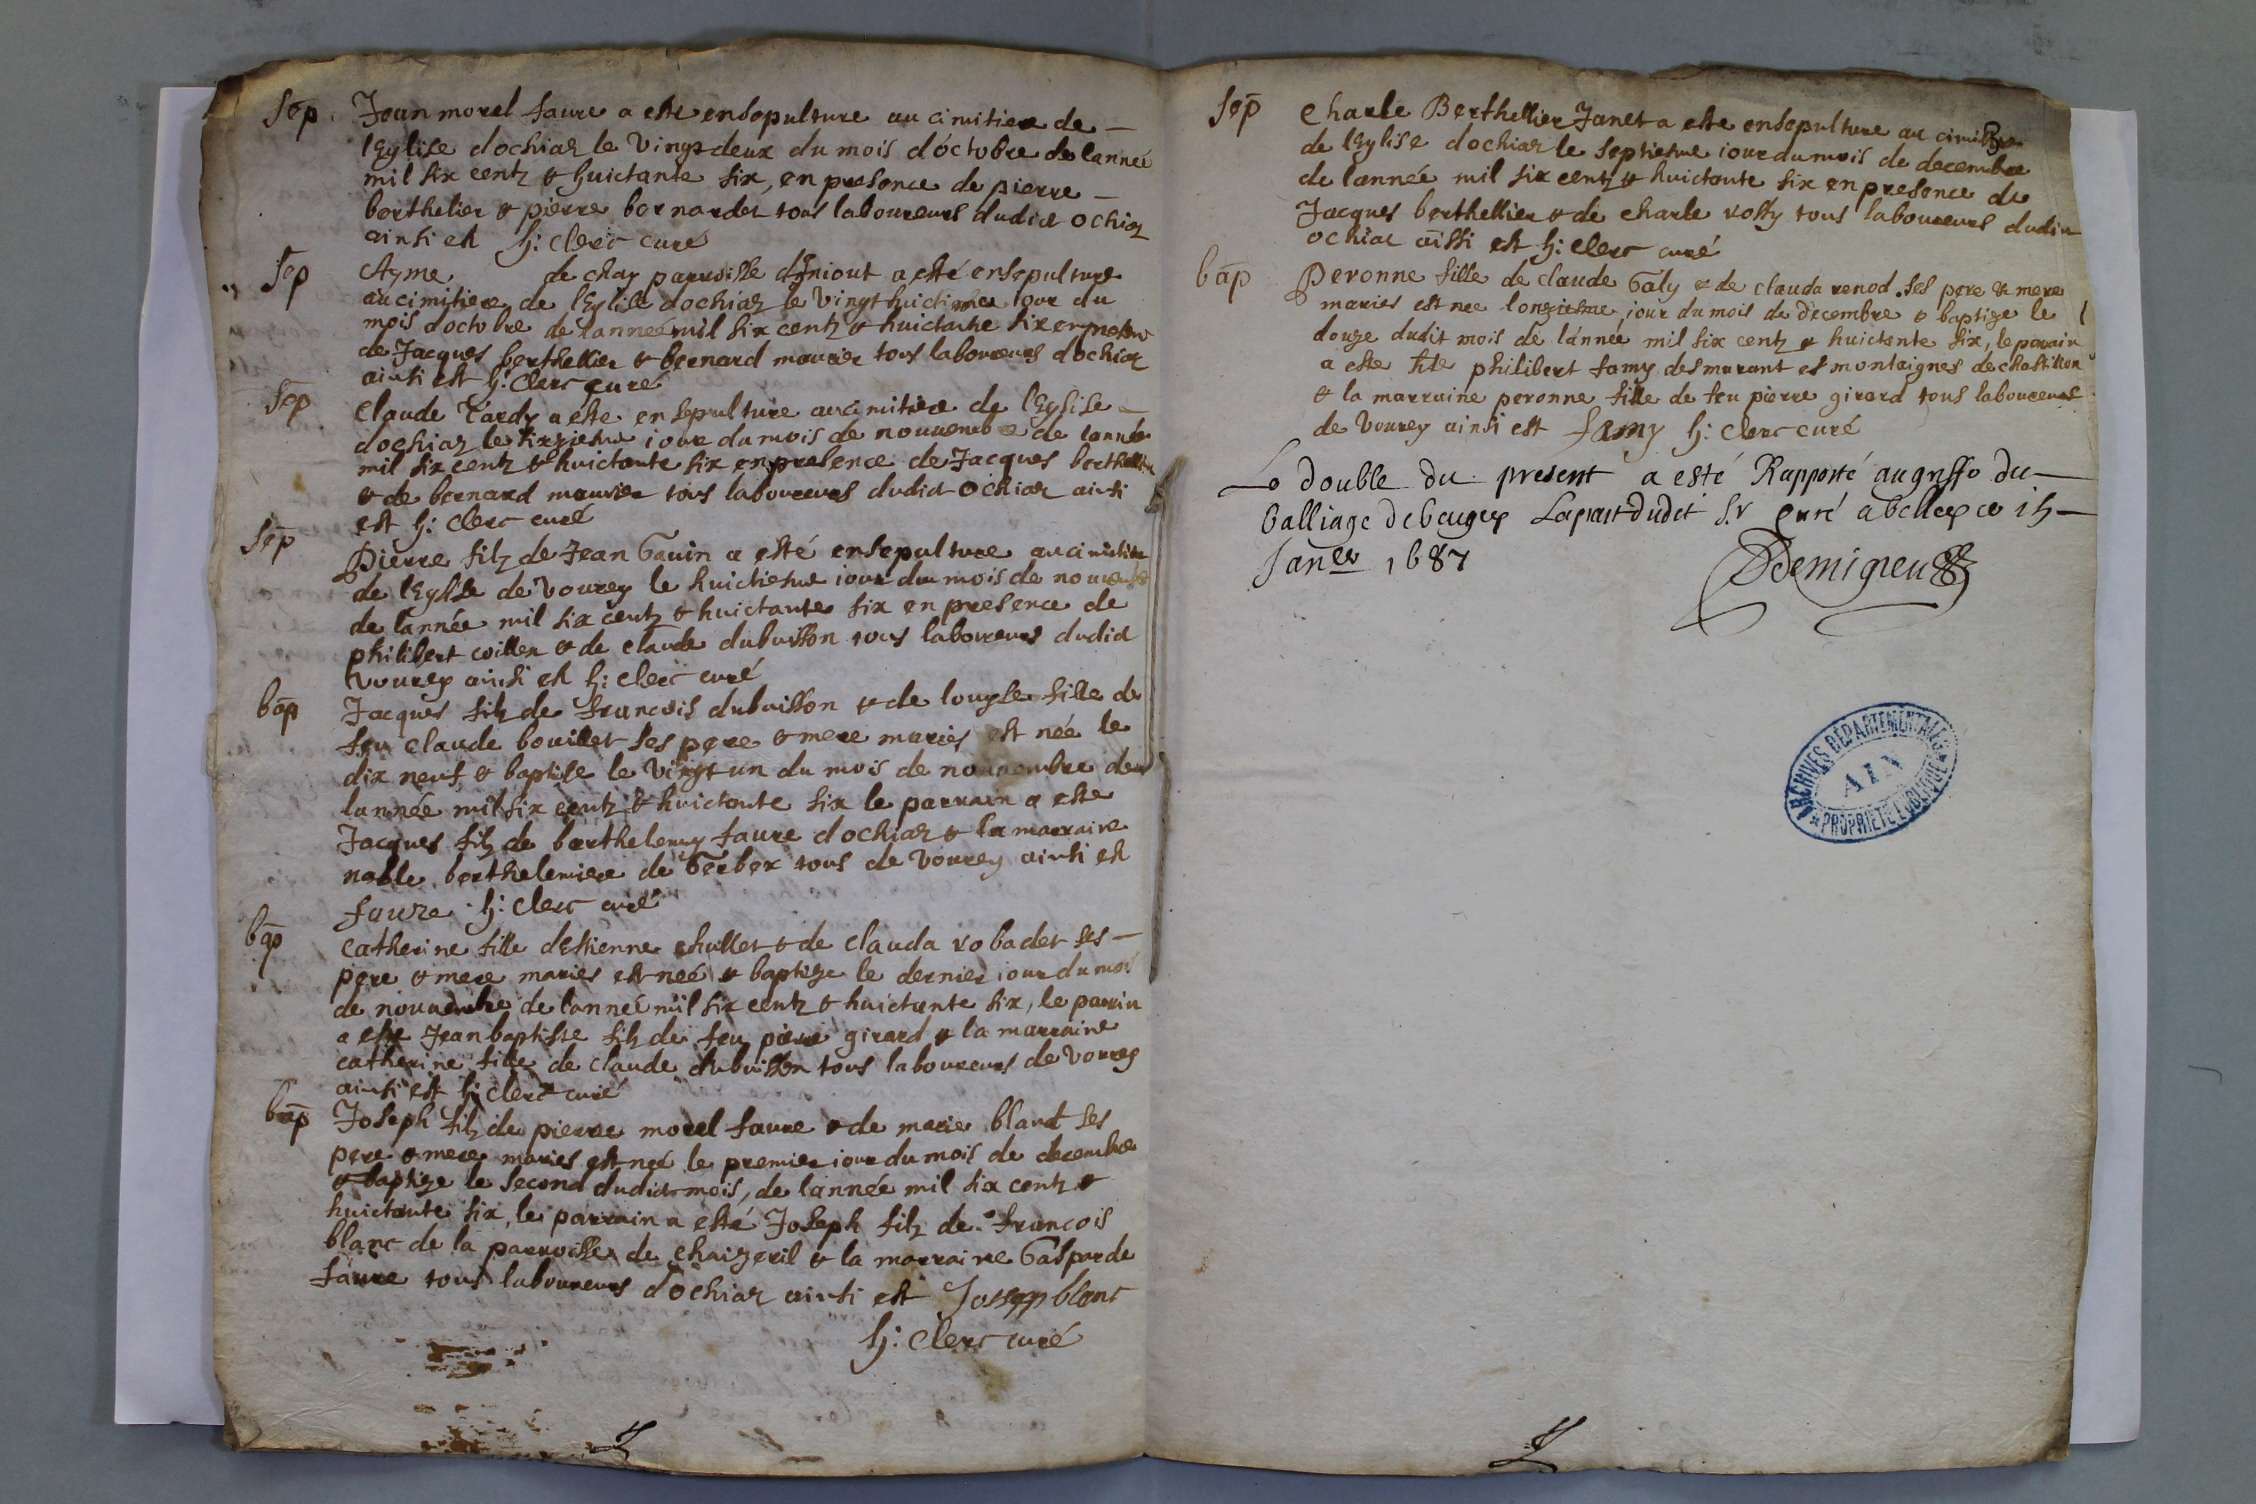 sep. Jean morel faure a esté ensepulturé au cimitiere de
lEglise dochiaz le vingt deux du mois d'octobre de lanneé
mil six centz & huictante six, en presence de pierre
berthelier & pierre bernardet tous laboureurs dudict ochiaz
ainsi est h: clerc curé
sep Ayme de chay parroisse a esté ensepulturé
au cimitiere de lEglise dochiaz le vingt huictiesme iour du
mois doctobre de lanneé mil six centz & huictante six en presence
de Jacques berthellier & bernard maurier tous laboureurs dochiaz
ainsi est h: clerc curé
sep Claude Tardy a esté ensepulturé au cimitiere de lEglise
dochiaz le sixziesme iour du mois de nouuembre de lannée
mil six centz & huictante six en presence de Jacques berthellier
& de bernard maurier tous laboureurs dudict ochiaz ainsi
est h: clerc curé
sep Pierre filz de Jean Gauin a esté ensepulturé au cimitiere
de lEglise de vourey le huictiesme iour du mois de nouuembre
de lannée mil six centz & huictante six en presence de
philibert & de claude dubuisson tous laboureurs dudict
vourey ainsi est h: clerc curé
bap Jacques filz de francois dubuisson & de louyse fille de
feu claude bouillet ses pere & mere mariés est née le
dix neuf & baptisé le vingt un du mois de nouuembre de
lannée mil six centz & huictante six le parrain a esté
Jacques filz de barthelemy faure dochiaz & la marraine
noble berthelemiere de Gerbex tous de vourey ainsi est
faure h: clerc curé
bap catherine fille dEstienne chullet & de clauda robadet ses
pere & mere mariés est neé & baptizé le dernier iour du mois
de nouuembre de lanneé mil six centz & huictante six, le parrin
a esté Jean baptiste filz de feu pierre girard & la marraine
catherine fille de claude dubuisson tous laboureurs de vourey
ainsi est h: clerc curé
bap Joseph filz de pierre morel faure & de marie blanc ses
pere & mere mariés est neé le premier iour du mois de decembre
& baptizé le second dudict mois, de lannée mil six centz &
huictante six, le parrain a esté Joseph filz de francois
blanc de la parroisse de chaizeril & la marraine Gasparde
faure tous laboureurs dochiaz ainsi est Josepp blanc
h: clerc curé
sep Charle Berthellier Janet a esté ensepulturé au cimitiere
de lEglise dochiaz le septiesme iour du mois de decembre
de lannée mil six centz & huictante six en presence de
Jacques berthellier & de charle rossy tous laboureurs dudict
ochiaz aissi est h: clerc curé
bap Peronne fille de claude Galy & de clauda renod ses pere & mere
mariés est neé lonziesme iour du mois de decembre & baptizé le
douze dudit mois de lánneé mil six centz & huictante six, le parrain
a esté philibert famy desmurant es montaignes de chastillon
& la marraine peronne fille de feu pierre girard tous laboureurs
de vourey ainsi est famy h: clerc curé
Le double du present a esté Rapporté au greffe du
balliage de beugey Lapart dudit Sr curé a belley ce 15
Janer 1687
Demigieu
ARCHIVES DÉPARTEMENTALES
AIN
PROPRIÉTÉ PUBLIQUE